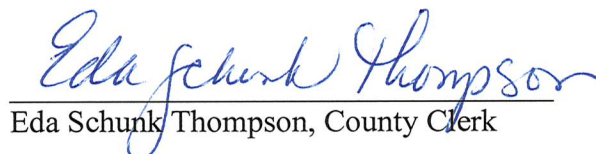 Eda Schunk Thompson
Eda Schunk Thompson, County Clerk